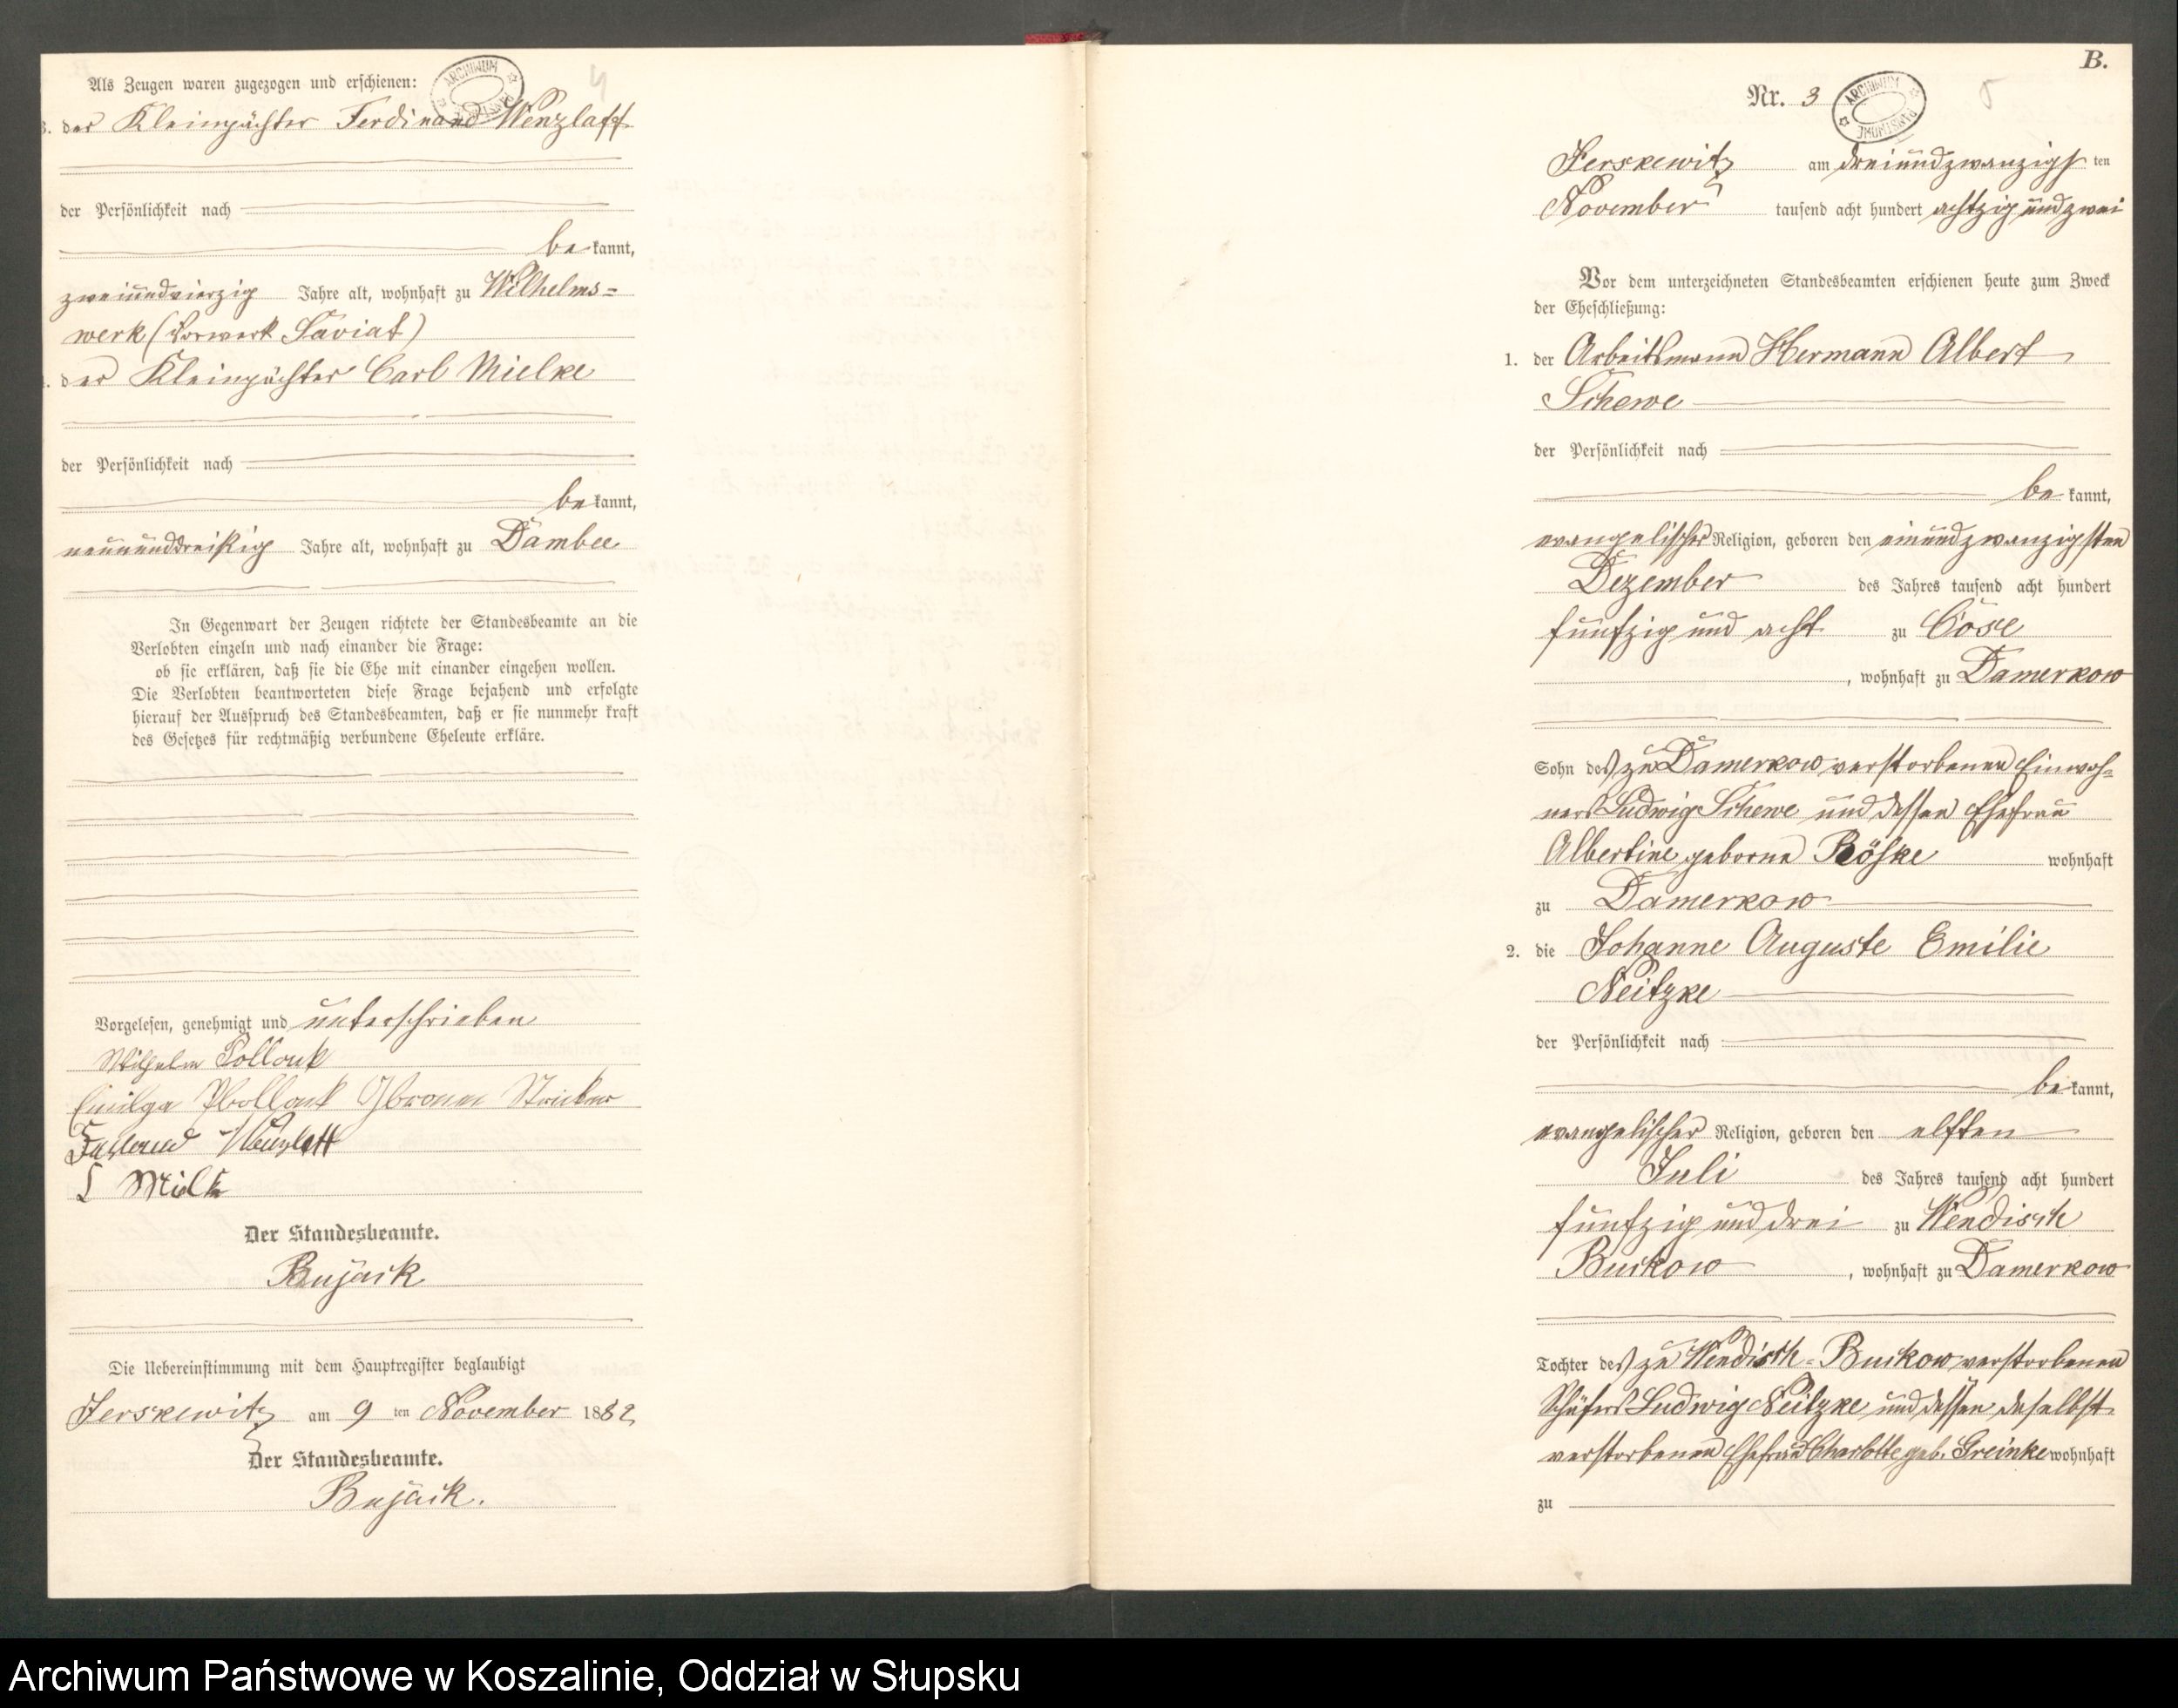 Als Zeugen waren zugezogen und erschienen:
3. der Kleinpächter Ferdinand Wenzlaff
der Persönlichkeit nach
be kannt,
zweiundvierzig Jahre alt, wohnhaft zu Wilhelms=
werk (Vorwerk Saviat)
der Kleinpächter Carl Mielke
der Persönlichkeit nach
be kannt,
neununddreißig Jahre alt, wohnhaft zu Dambee
In Gegenwart der Zeugen richtete der Standesbeamte an die
Verlobten einzeln und nach einander die Frage:
ob sie erklären, daß sie die Ehe mit einander eingehen wollen.
Die Verlobten beantworteten diese Frage bejahend und erfolgte
hierauf der Ausspruch des Standesbeamten, daß er sie nunmehr kraft
des Gesetzes für rechtmäßig verbundene Eheleute erkläre.
Vorgelesen, genehmigt und unterschrieben
Wilhelm Pollonk
Der Standesbeamte.
Bujack
Die Uebereinstimmung mit dem Hauptregister beglaubigt
Jerskewitz am 9 ten November 1882
Der Standesbeamte.
Bujack.
ARCHIWUM PAŃSTWOWE
4
B.
Nr. 3
ARCHIWUM PAŃSTWOWE
5
Jerskewitz am dreiundzwanzigs ten
November tausend acht hundert achtzig und zwei
Vor dem unterzeichneten Standesbeamten erschienen heute zum Zweck
der Eheschließung:
1. der Arbeitsmann Hermann Albert
Schewe
der Persönlichkeit nach
be kannt,
evangelischer Religion, geboren den einundzwanzigsten
Dezember des Jahres tausend acht hundert
fünfzig und acht zu Cose
, wohnhaft zu Damerkow
Sohn des zu Damerkow verstorbenen Einwoh=
ners Ludwig Schewe und dessen Ehefrau
Albertine geborne Röske wohnhaft
zu Damerkow
2. die Johanne Auguste Emilie
Neitzke
der Persönlichkeit nach
be kannt,
evangelischer Religion, geboren den elften
Juli des Jahres tausend acht hundert
fünfzig und drei zu Wendisch
Buckow, wohnhaft zu Damerkow
Tochter des zu Wendisch=Buckow verstorbenen
Schäfers Ludwig Neitzke und dessen daselbst
verstorbenen Ehefrau Charlotte geb. Greinke wohnhaft
zu
Archiwum Państwowe w Koszalinie, Oddział w Słupsku